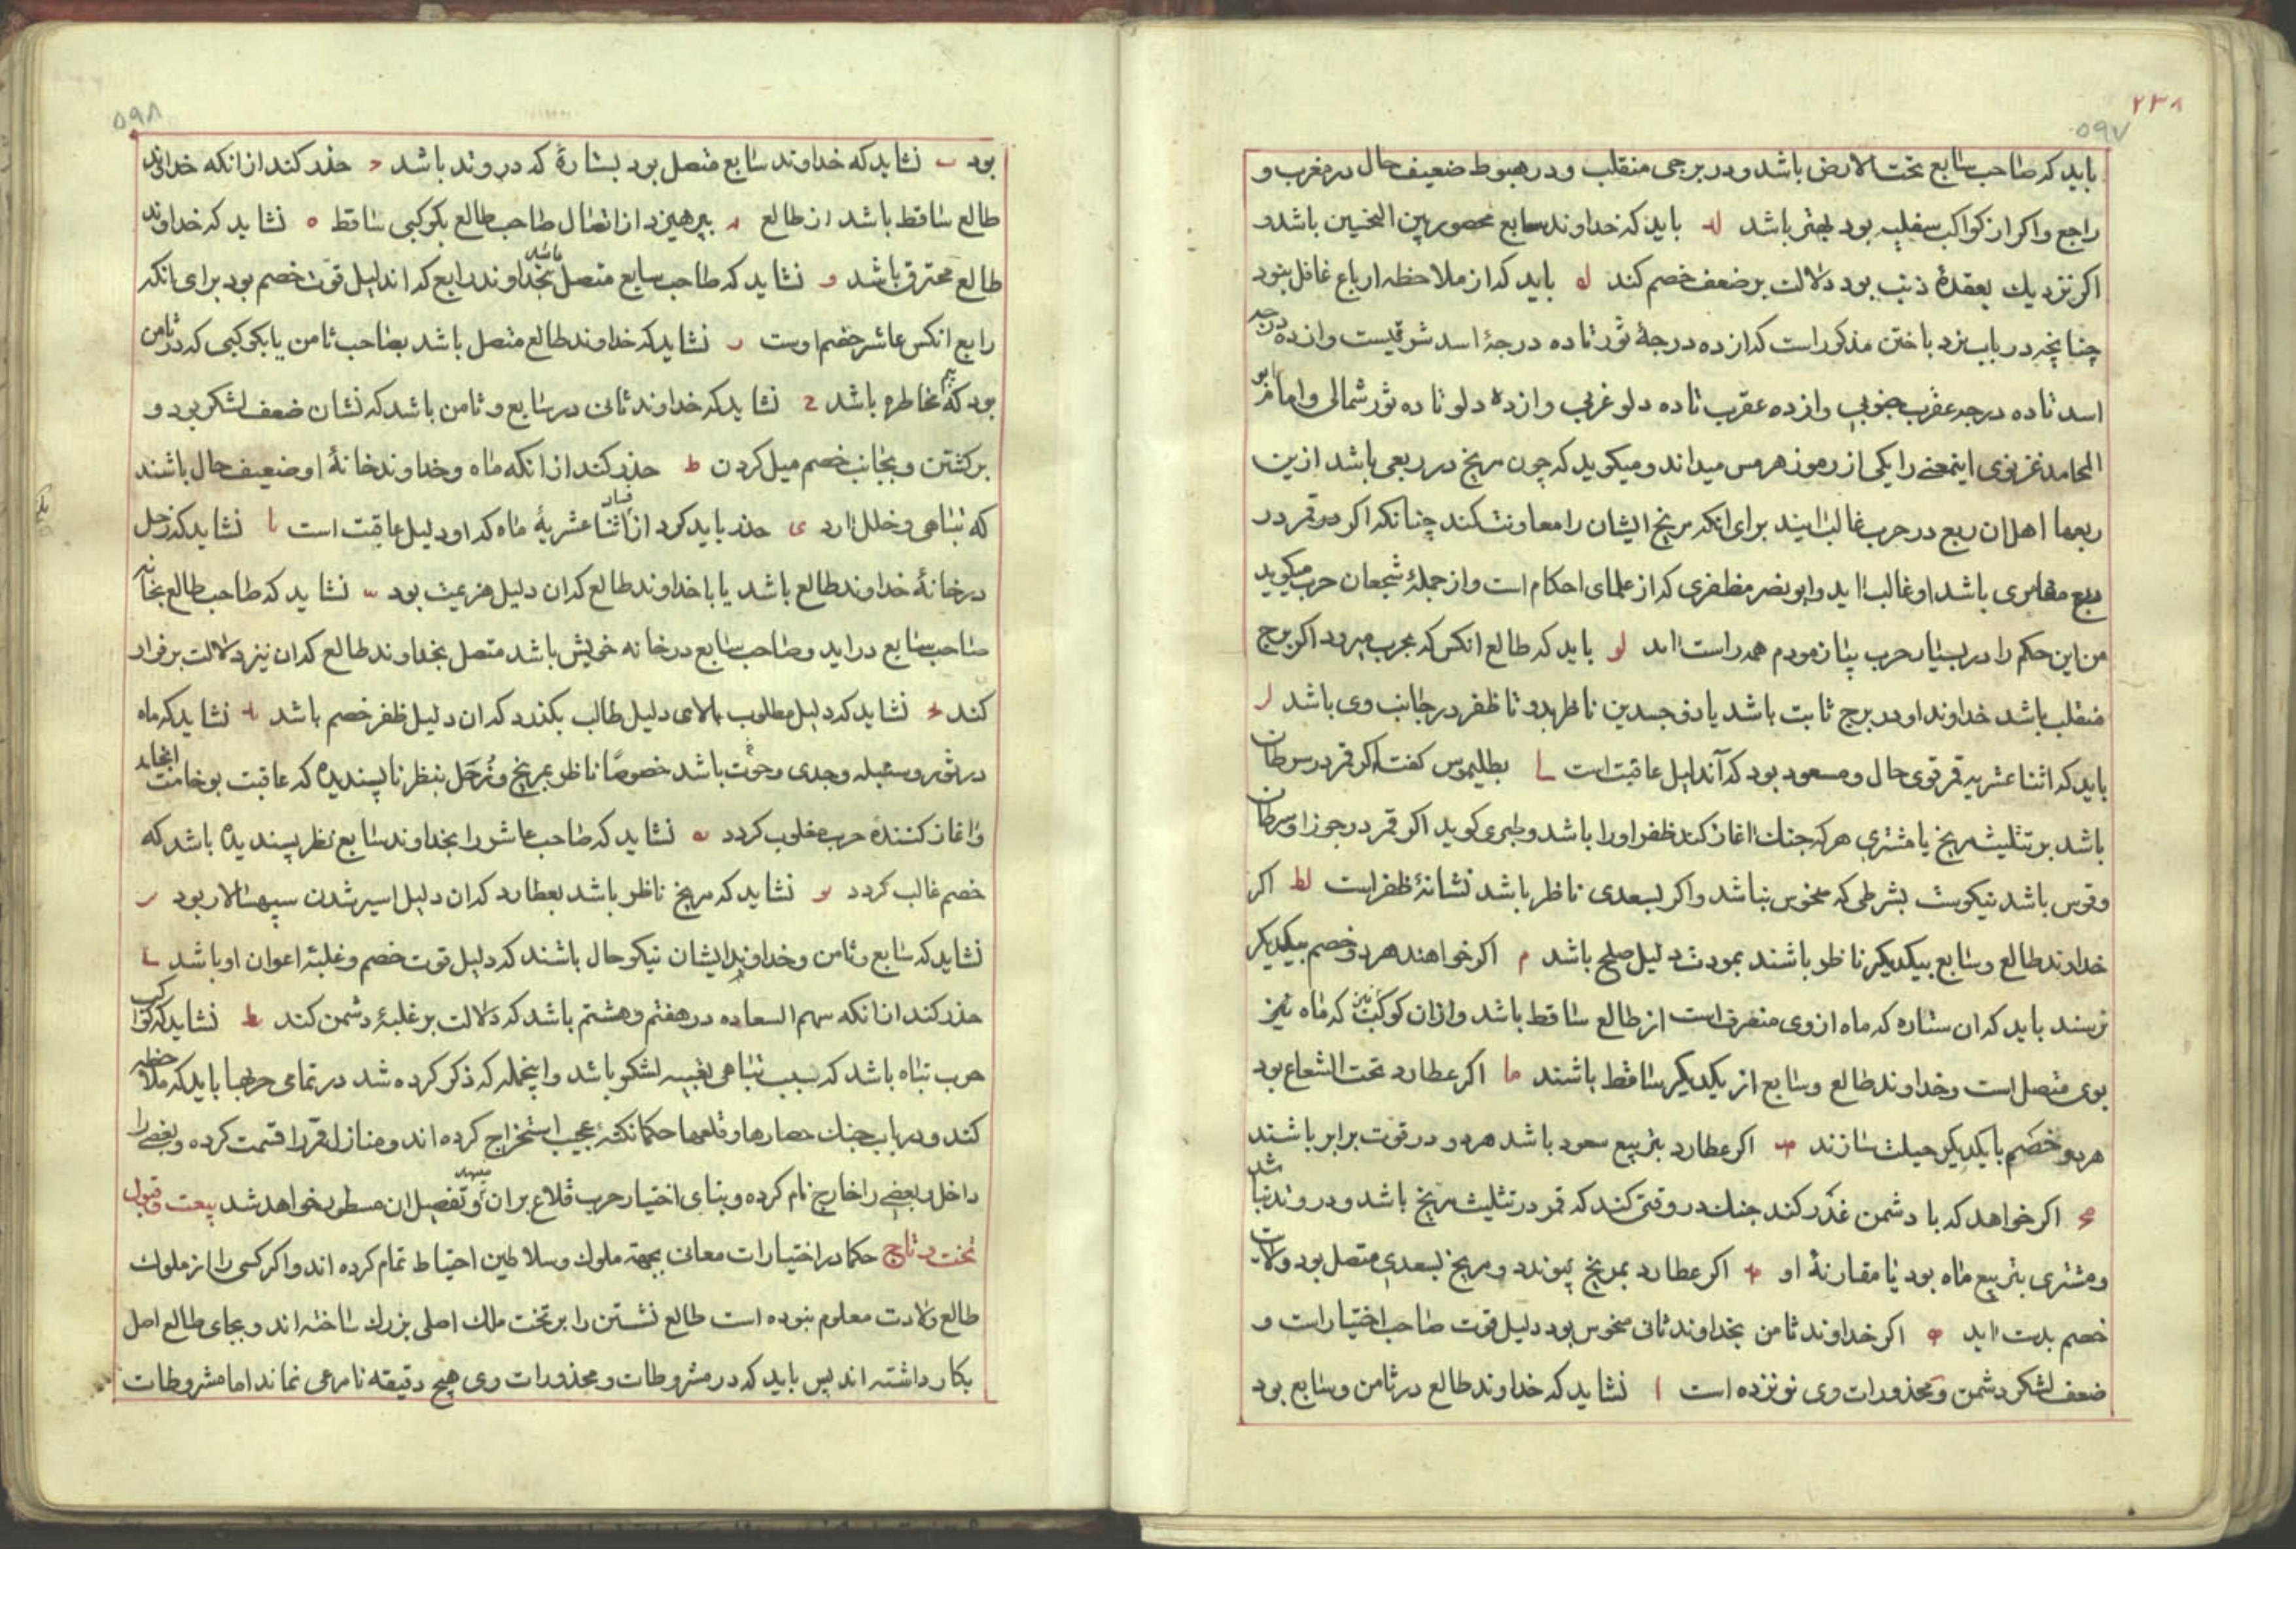 ۲۳۸
۵۹۷
باید که صاحب سابع تحت الارض باشد و در برجی منقلب و در هبوط ضعیف حال در مغرب و
راجع و اکر از کواکب سفلیه بود بهتر باشد له باید که خداوند سابع محصور بین النحسین باشد و
اکر نزدیك بعقدهٔ ذنب بود دلالت بر ضعف خصم کند لو باید که از ملاحظه ارباع غافل نبود
چنانچه در باب نرد باختن مذکور است که از ده درجهٔ ثور تا ده درجهٔ اسد شرقیست و از ده درجه
اسد تا ده درجه عقرب جنوبی و از ده عقرب تا ده دلو غربی و از ده دلو تا ده ثور شمالی و امام ابو
المحامد غزنوی اینمعنے را یکی از رموز هرمس میداند و میکوید که چون مریخ در ربعی باشد ازین
ربعها اهل ان ربع در حرب غالب ایند برای انکه مریخ ایشان را معاونت کند چنانکه اکر در قمر در
ربع مقامری باشد او غالب اید و ابو نصر مظفری که از علمای احکام است و از جملهٔ شجعان حرب میکوید
من این حکم را در بسیار حرب بیازمودم همه راست امد لو باید که طالع انکس که بحرب میرود اکر برج
منقلب باشد خداوند او در برج ثابت باشد یا ذو جسدین ناظر بدو تا ظفر در جانب وی باشد لر
باید که اثنا عشریه قمر قوی حال و مسعود بود که آن دلیل عاقبت است لح بطلیموس کفت اکر قمر در سرطان
باشد بر تثلیث مریخ یا مشتری هر که جنك اغاز کند ظفر او را باشد و طبری کوید اکر قمر در جوزا و سرطان
و قوس باشد نیکوست بشرطی که منحوس نباشد و اکر بسعدی ناظر باشد نشانهٔ ظفر است لط اکر
خداوند طالع و سابع بیکدیکر ناظر باشند بمودت دلیل صلح باشد م اکر خواهند هر دو خصم بیکدیکر
نرسند باید که ان ستاره که ماه از وی منصرف است از طالع ساقط باشد و ازان کوکب نیز که ماه نیز
بوی متصل است و خداوند طالع و سابع از یکدیکر ساقط باشند ما اکر عطارد تحت الشعاع بود
هر دو خصم با یکدیکر حیلت سازند مب اکر عطارد بتربیع سعود باشد هر دو در قوت برابر باشند
مج اکر خواهد که با دشمن غدر کند جنك در وقتی کند که قمر در تثلیث مریخ باشد و در وتد نباشد
و مشتری بتربیع ماه بود یا مقارنهٔ او مد اکر عطارد بمریخ پیوندد و مریخ بسعدی متصل بود ولات
خصم بدست اید مه اکر خداوند ثامن بخداوند ثانی منحوس بود دلیل قوت صاحب اختیار است و
ضعف لشکر دشمن و محذورات وی نوزده است ا نشاید که خداوند طالع در ثامن و سابع بود
۵۹۸
بود ب نشاید که خداوند سابع متصل بود بستارهٔ که در وتد باشد ج حذر کند از انکه خداوند
طالع ساقط باشد از طالع د بپرهیزد از اتصال صاحب طالع بکوکبی ساقط ه نشاید که خداوند
طالع محترق باشد و نشاید که صاحب سابع متصل باشد بخداوند رابع که ان دلیل قوت خصم بود برای انکه
رابع انکس عاشر خصم اوست ر نشاید که خداوند طالع متصل باشد بصاحب ثامن یا بکوکبی که در ثامن
بود که بیم مخاطره باشد ح نشاید که خداوند ثانی در سابع و ثامن باشد که نشان ضعف لشکر بود و
برکشتن و بجانب خصم میل کردن ط حذر کند از انکه ماه و خداوند خانهٔ او ضعیف حال باشند
که تباهی و خلل ارد ی حذر باید کرد از فساد اثنا عشریهٔ ماه که او دلیل عاقبت است یا نشاید که زحل
در خانهٔ خداوند طالع باشد یا با خداوند طالع که ان دلیل هزیمت بود یب نشاید که صاحب طالع بخانه
صاحب سابع در اید و صاحب سابع در خانه خویش باشد متصل بخداوند طالع که ان نیز دلالت بر فرار
کند یج نشاید که دلیل مطلوب بالای دلیل طالب بکذرد که ان دلیل ظفر خصم باشد ید نشاید که ماه
در ثور و سنبله و جدی و حوت باشد خصوصًا ناظر بمریخ و زحل بنظر ناپسندیده که عاقبت بوخامت انجامد
و اغاز کنندهٔ حرب مغلوب کردد یه نشاید که صاحب عاشر را بخداوند سابع نظر پسندیده باشد که
خصم غالب کردد یو نشاید که مریخ ناظر باشد بعطارد که ان دلیل اسیر شدن سپهسالار بود یر
نشاید که سابع و ثامن و خداوند ایشان نیکو حال باشند که دلیل قوت خصم و غلبهٔ اعوان او باشد یح
حذر کند از انکه سهم السعاده در هفتم و هشتم باشد که دلالت بر غلبهٔ دشمن کند یط نشاید که کواکب
حرب تباه باشد که سبب تباهی تعبیه لشکر باشد و اینجمله که ذکر کرده شد در تمامی حربها باید که ملاحظه
کنند و در باب جنك حصارها و قلعها حکما نکتهٔ عجیب استخراج کرده اند و منازل قمر را قسمت کرده و بعضے را
داخل و بعضے را خارج نام کرده و بنای اختیار حرب قلاع بران نهند و تفصیل ان مسطور خواهد شد بیعت و قبول
تخت و تاج حکما در اختیارات معانی بجهته ملوك و سلاطین احتیاط تمام کرده اند و اکر کسی را از ملوك
طالع ولادت معلوم نبوده است طالع نشستن را بر تخت ملك اصلی بزرك ساخته اند و بجای طالع اصل
بکار داشته اند پس باید که در مشروطات و محذورات وی هیچ دقیقه نامرعی نماند اما مشروطات